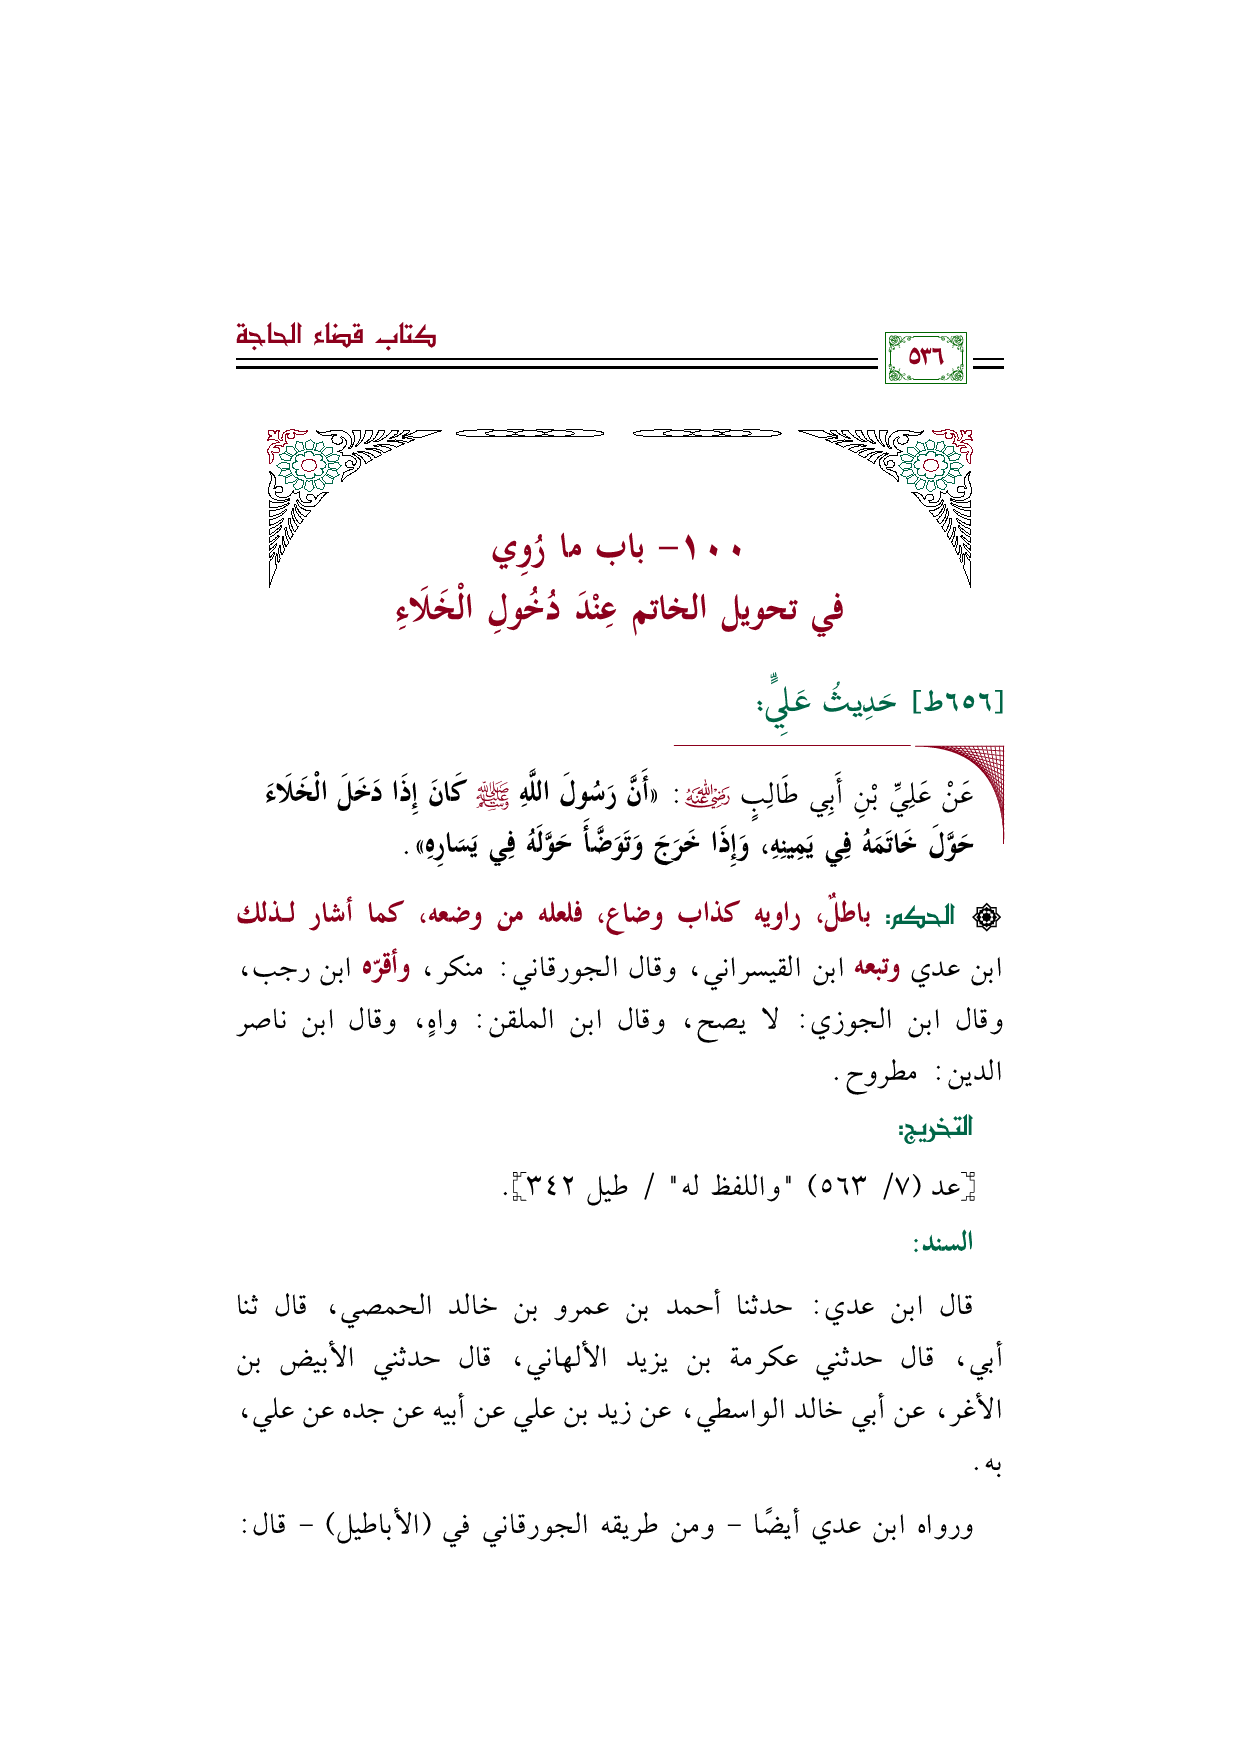 كتاب قضاء الحاجة
٥٣٦
١٠٠- باب ما رُوِي
في تحويل الخاتم عِنْدَ دُخُولِ الْخَلَاءِ
[٦٥٦ط] حَدِيثُ عَلِيٍّ:
عَنْ عَلِيِّ بْنِ أَبِي طَالِبٍ رضي الله عنه: «أَنَّ رَسُولَ اللَّهِ ﷺ كَانَ إِذَا دَخَلَ الْخَلَاءَ
حَوَّلَ خَاتَمَهُ فِي يَمِينِهِ، وَإِذَا خَرَجَ وَتَوَضَّأَ حَوَّلَهُ فِي يَسَارِهِ».
الحكم: باطلٌ، راويه كذاب وضاع، فلعله من وضعه، كما أشار لـذلك
ابن عدي وتبعه ابن القيسراني، وقال الجورقاني: منكر، وأقرّه ابن رجب،
وقال ابن الجوزي: لا يصح، وقال ابن الملقن: واهٍ، وقال ابن ناصر
الدين: مطروح.
التخريج:
[عد (٧/ ٥٦٣) "واللفظ له" / طيل ٣٤٢].
السند:
قال ابن عدي: حدثنا أحمد بن عمرو بن خالد الحمصي، قال ثنا
أبي، قال حدثني عكرمة بن يزيد الألهاني، قال حدثني الأبيض بن
الأغر، عن أبي خالد الواسطي، عن زيد بن علي عن أبيه عن جده عن علي،
به.
ورواه ابن عدي أيضًا – ومن طريقه الجورقاني في (الأباطيل) – قال: